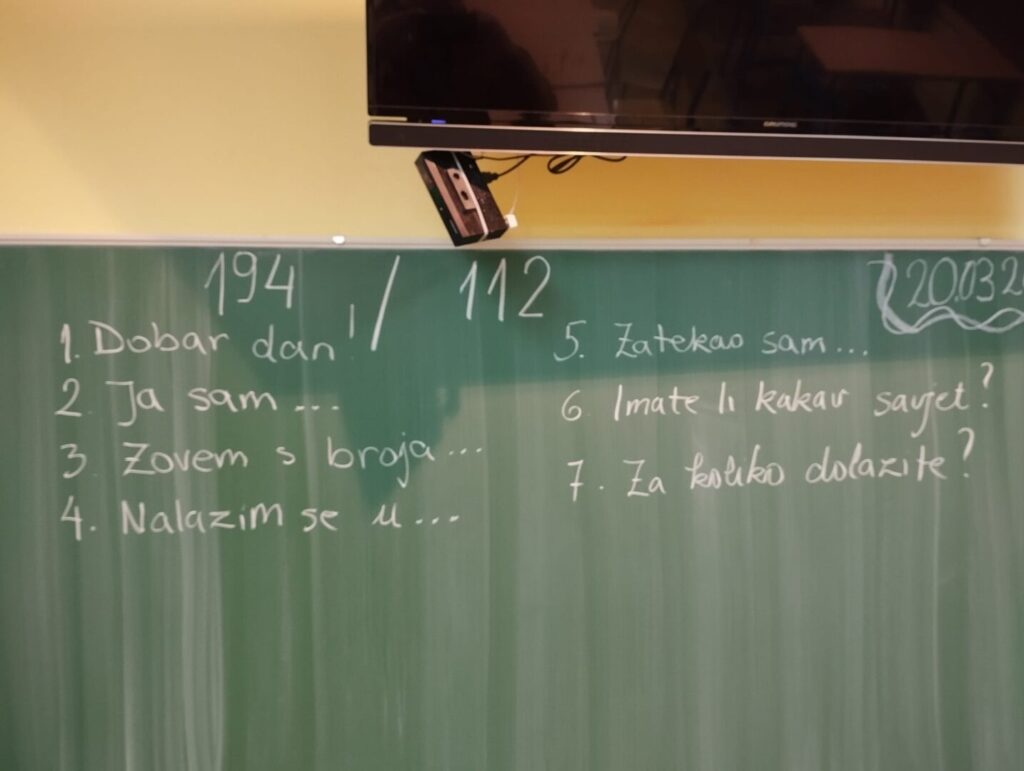 GRUNDIG
194 / 112
20.03.20
1. Dobar dan!
2. Ja sam...
3. Zovem s broja...
4. Nalazim se u...
5. Zatekao sam...
6. Imate li kakav savjet?
7. Za koliko dolazite?